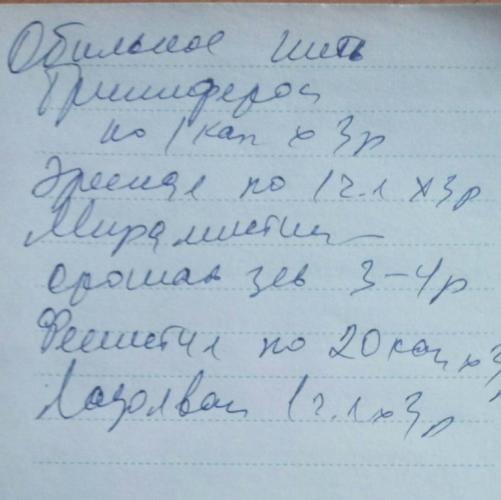 Обильное пить
Гриппферон
по 1 кап х 3 р
Эреспал по 1 ч.л х 3 р
Мирамистин —
орошать зев 3-4 р
Фенистил по 20 кап х 3
Лазолван 1 ч.л х 3 р